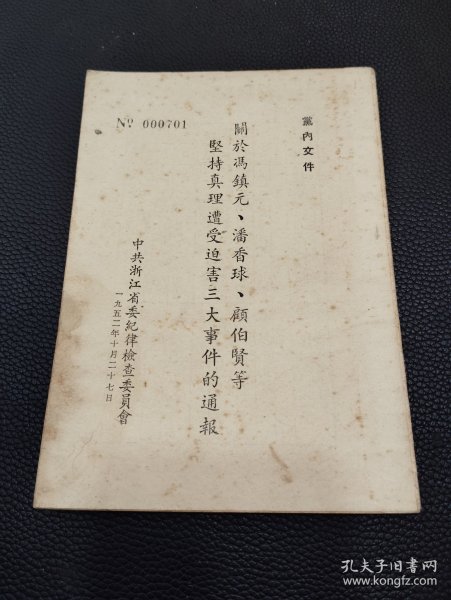 黨內文件
№ 000701
關於馮鎮元、潘香球、顧伯賢等
堅持真理遭受迫害三大事件的通報
中共浙江省委紀律檢查委員會
一九五二年十月二十七日
孔夫子旧书网
www.kongfz.com